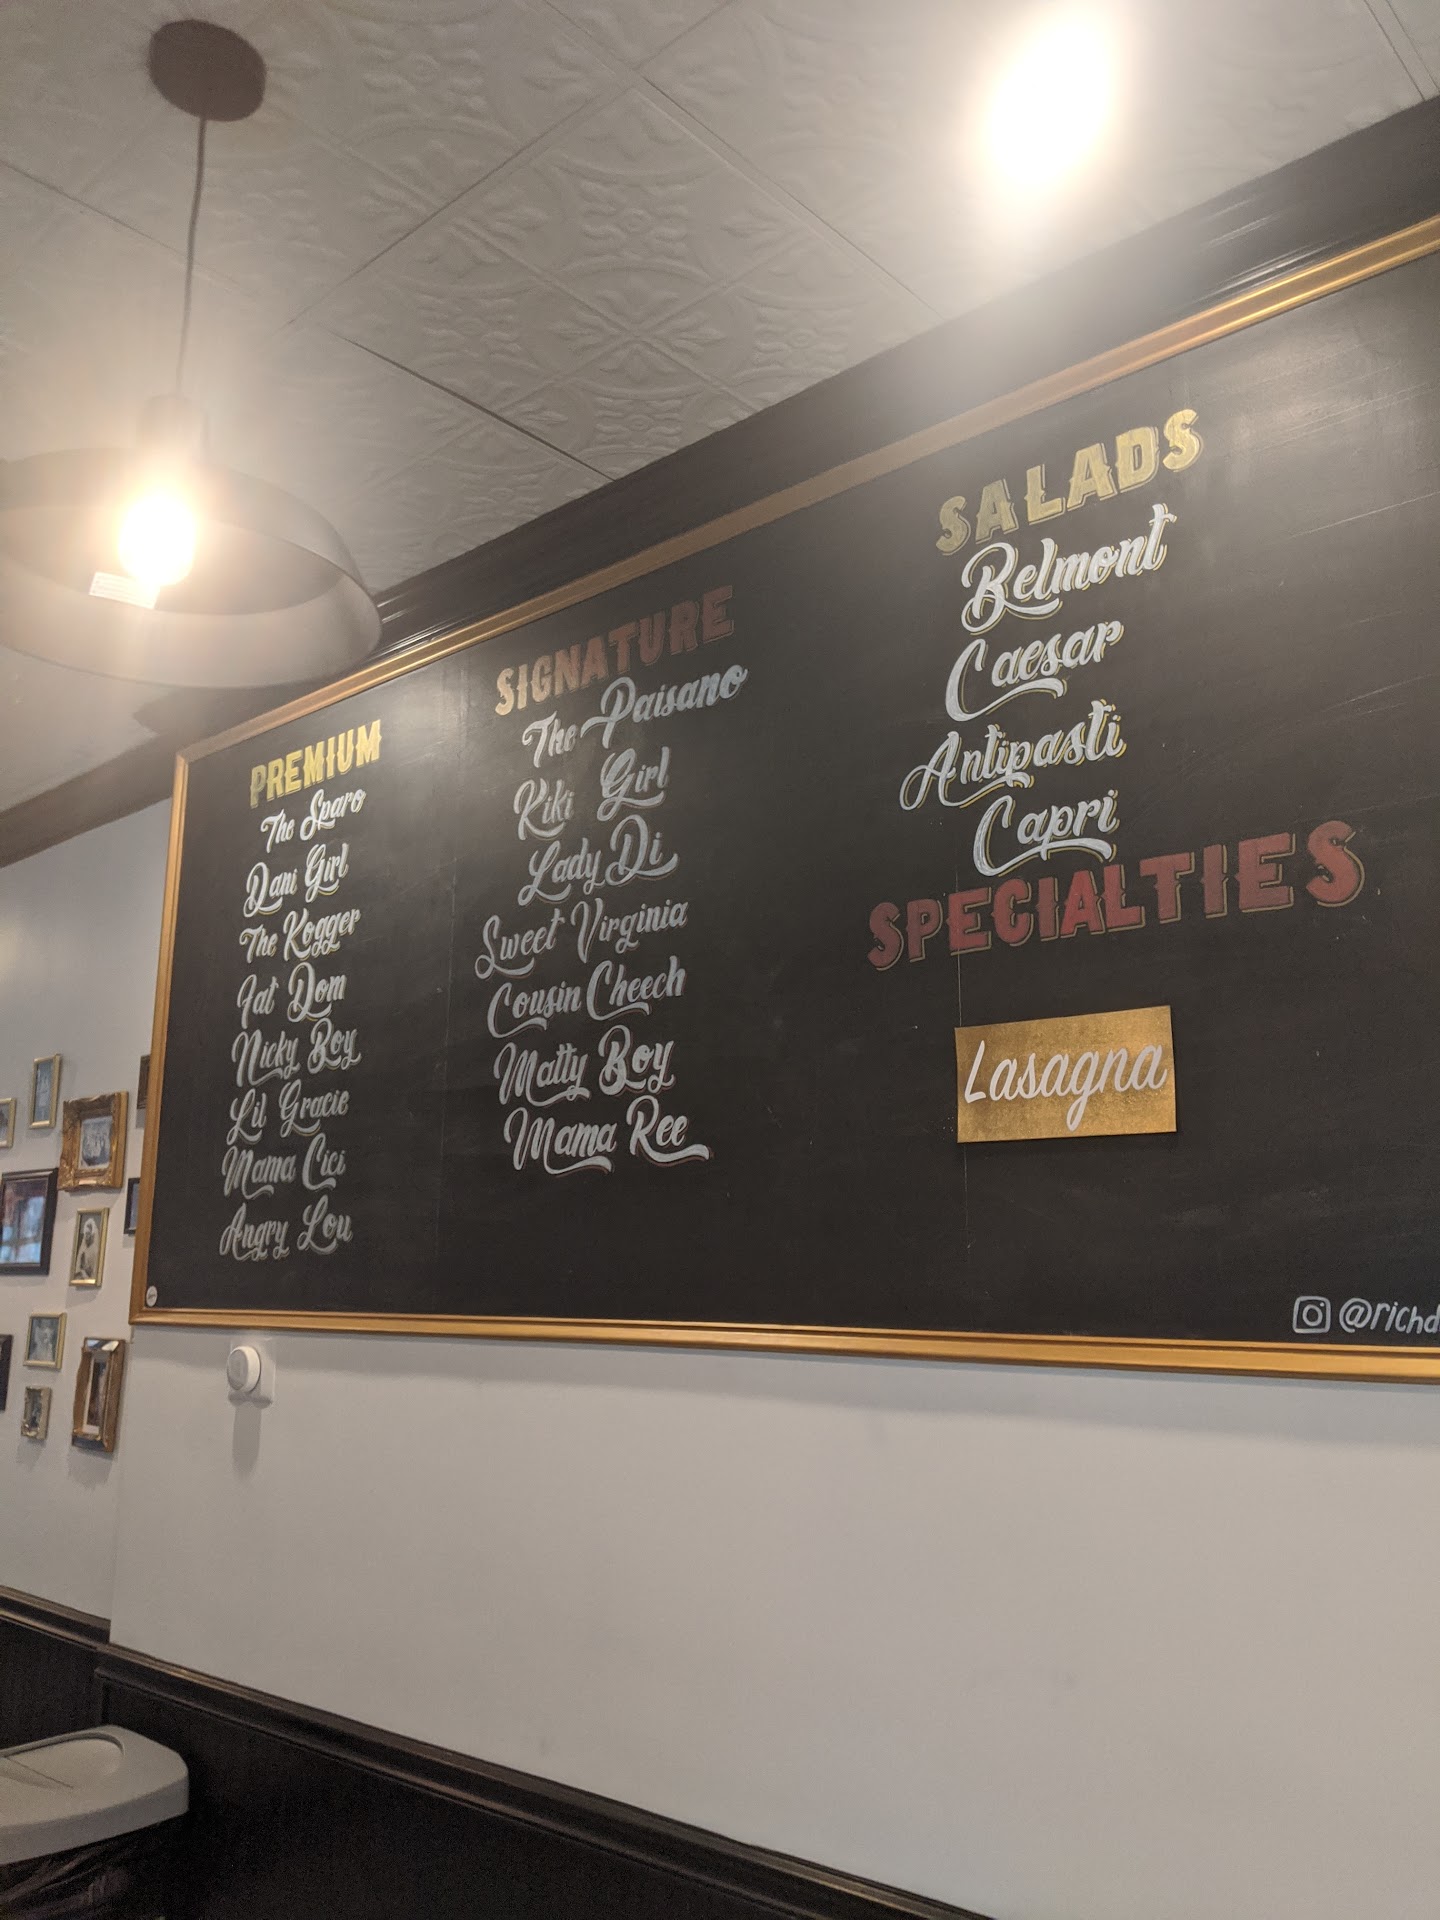 PREMIUM
The Sparo
Dani Girl
The Kogger
Fat Dom
Nicky Boy
Lil Gracie
Mama Cici
Angry Lou
SIGNATURE
The Paisano
Kiki Girl
Lady Di
Sweet Virginia
Cousin Cheech
Matty Boy
Mama Ree
SALADS
Belmont
Caesar
Antipasti
Capri
SPECIALTIES
Lasagna